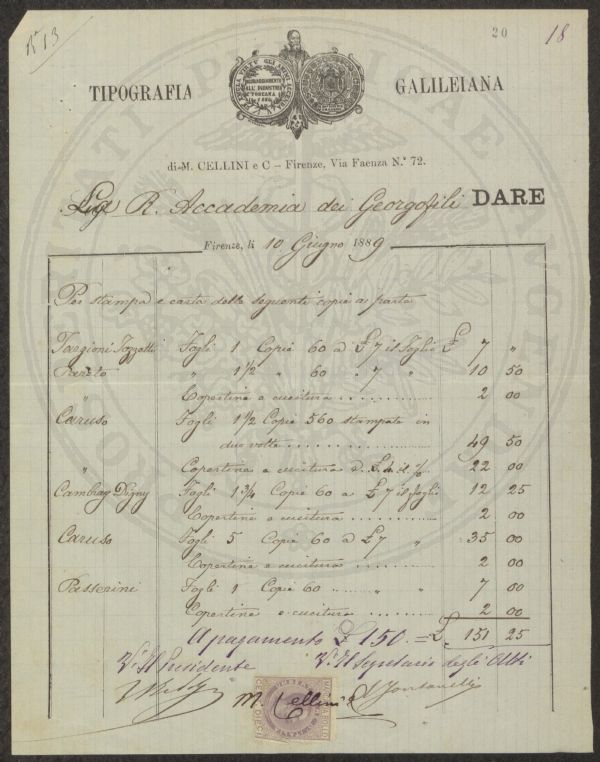 N° 13
20
18
TIPOGRAFIA GALILEIANA
di M. CELLINI e C – Firenze, Via Faenza N.° 72.
R. Accademia dei Georgofili DARE
Firenze, li 10 Giugno 1889
Per stampa e carta delle seguenti copie a parte
Targioni Tozzetti Fogli 1 Copie 60 a £ 7 il foglio £ 7 "
" 1 1/2 " 60 " 7 " 10 50
" Copertina e cucitura 2 00
Caruso Fogli 1 1/2 Copie 560 stampate in
due volte 49 50
" Copertina e cucitura a £ 4 il % 22 00
Cambray Digny Fogli 1 3/4 Copie 60 a £ 7 il foglio 12 25
Copertina e cucitura 2 00
Caruso Fogli 5 Copie 60 a £ 7 " 35 00
Copertina e cucitura 2 00
Passerini Fogli 1 Copie 60 " " 7 00
Copertina e cucitura 2 00
A pagamento £ 150 = £ 151 25
V° Il Presidente V° Il Segretario degli Atti
M. Cellini